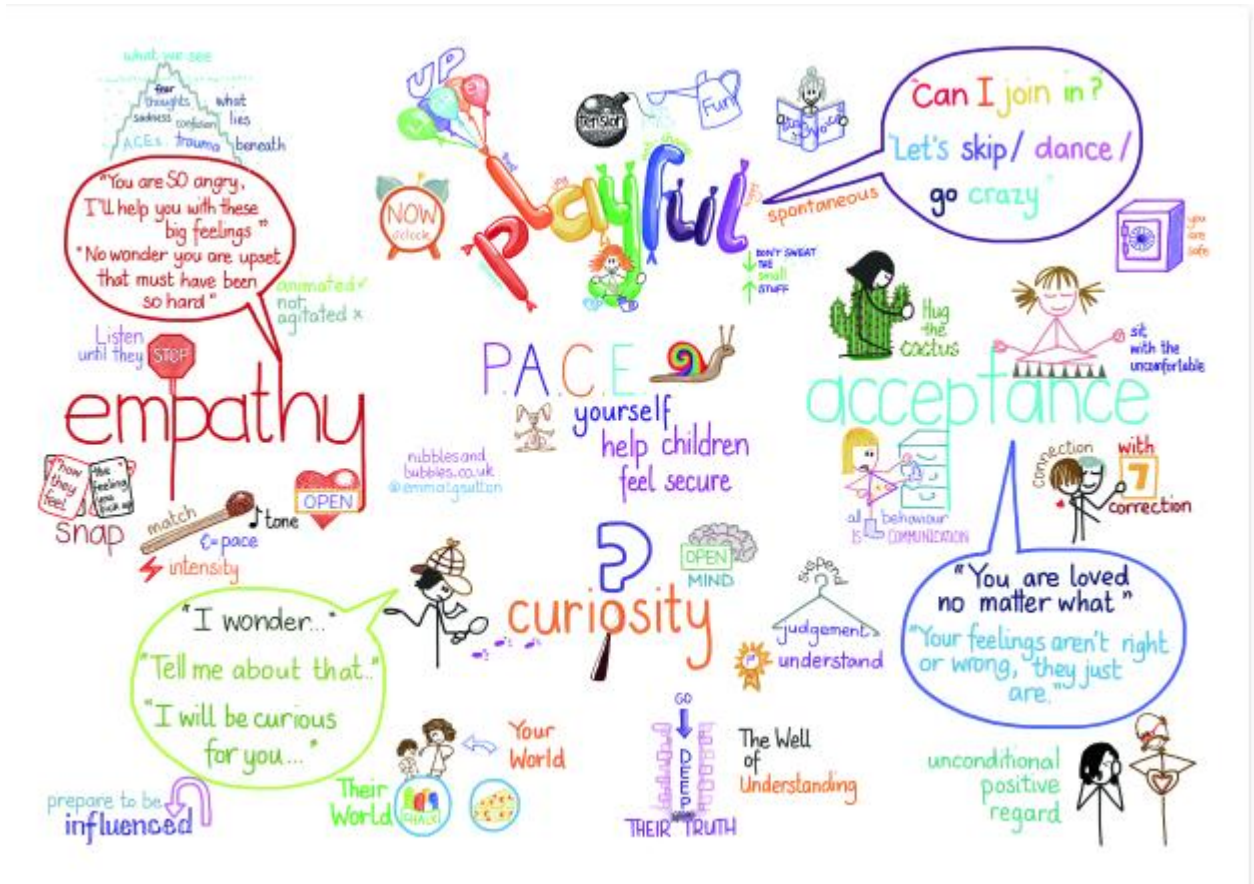 what we see
fear
thoughts
sadness confusion
A.C.Es trauma
what
lies
beneath
"You are SO angry,
I'll help you with these
big feelings"
"No wonder you are upset
that must have been
so hard"
animated ✓
not
agitated x
Listen
until they
STOP
empathy
how
they
feel
the
feeling
you
pick up
snap
match
tone
pace
intensity
OPEN
UP
NOW
o'clock
playful
tension
Fun
spontaneous
DON'T SWEAT
THE
small
STUFF
"Can I join in?"
"Let's skip/ dance/
go crazy"
you
are
safe
Hug
the
cactus
sit
with the
uncomfortable
acceptance
P.A.C.E
yourself
help children
feel secure
nibblesand
bubbles.co.uk
@emmatgsutton
all behaviour
IS COMMUNICATION
connection
with
7
correction
"You are loved
no matter what"
"Your feelings aren't right
or wrong, they just
are."
unconditional
positive
regard
?
curiosity
OPEN
MIND
suspend
judgement
1st
understand
"I wonder..."
"Tell me about that."
"I will be curious
for you..."
prepare to be
influenced
Your
World
Their
World
CHALK
GO
DEEP
THEIR TRUTH
The Well
of
Understanding